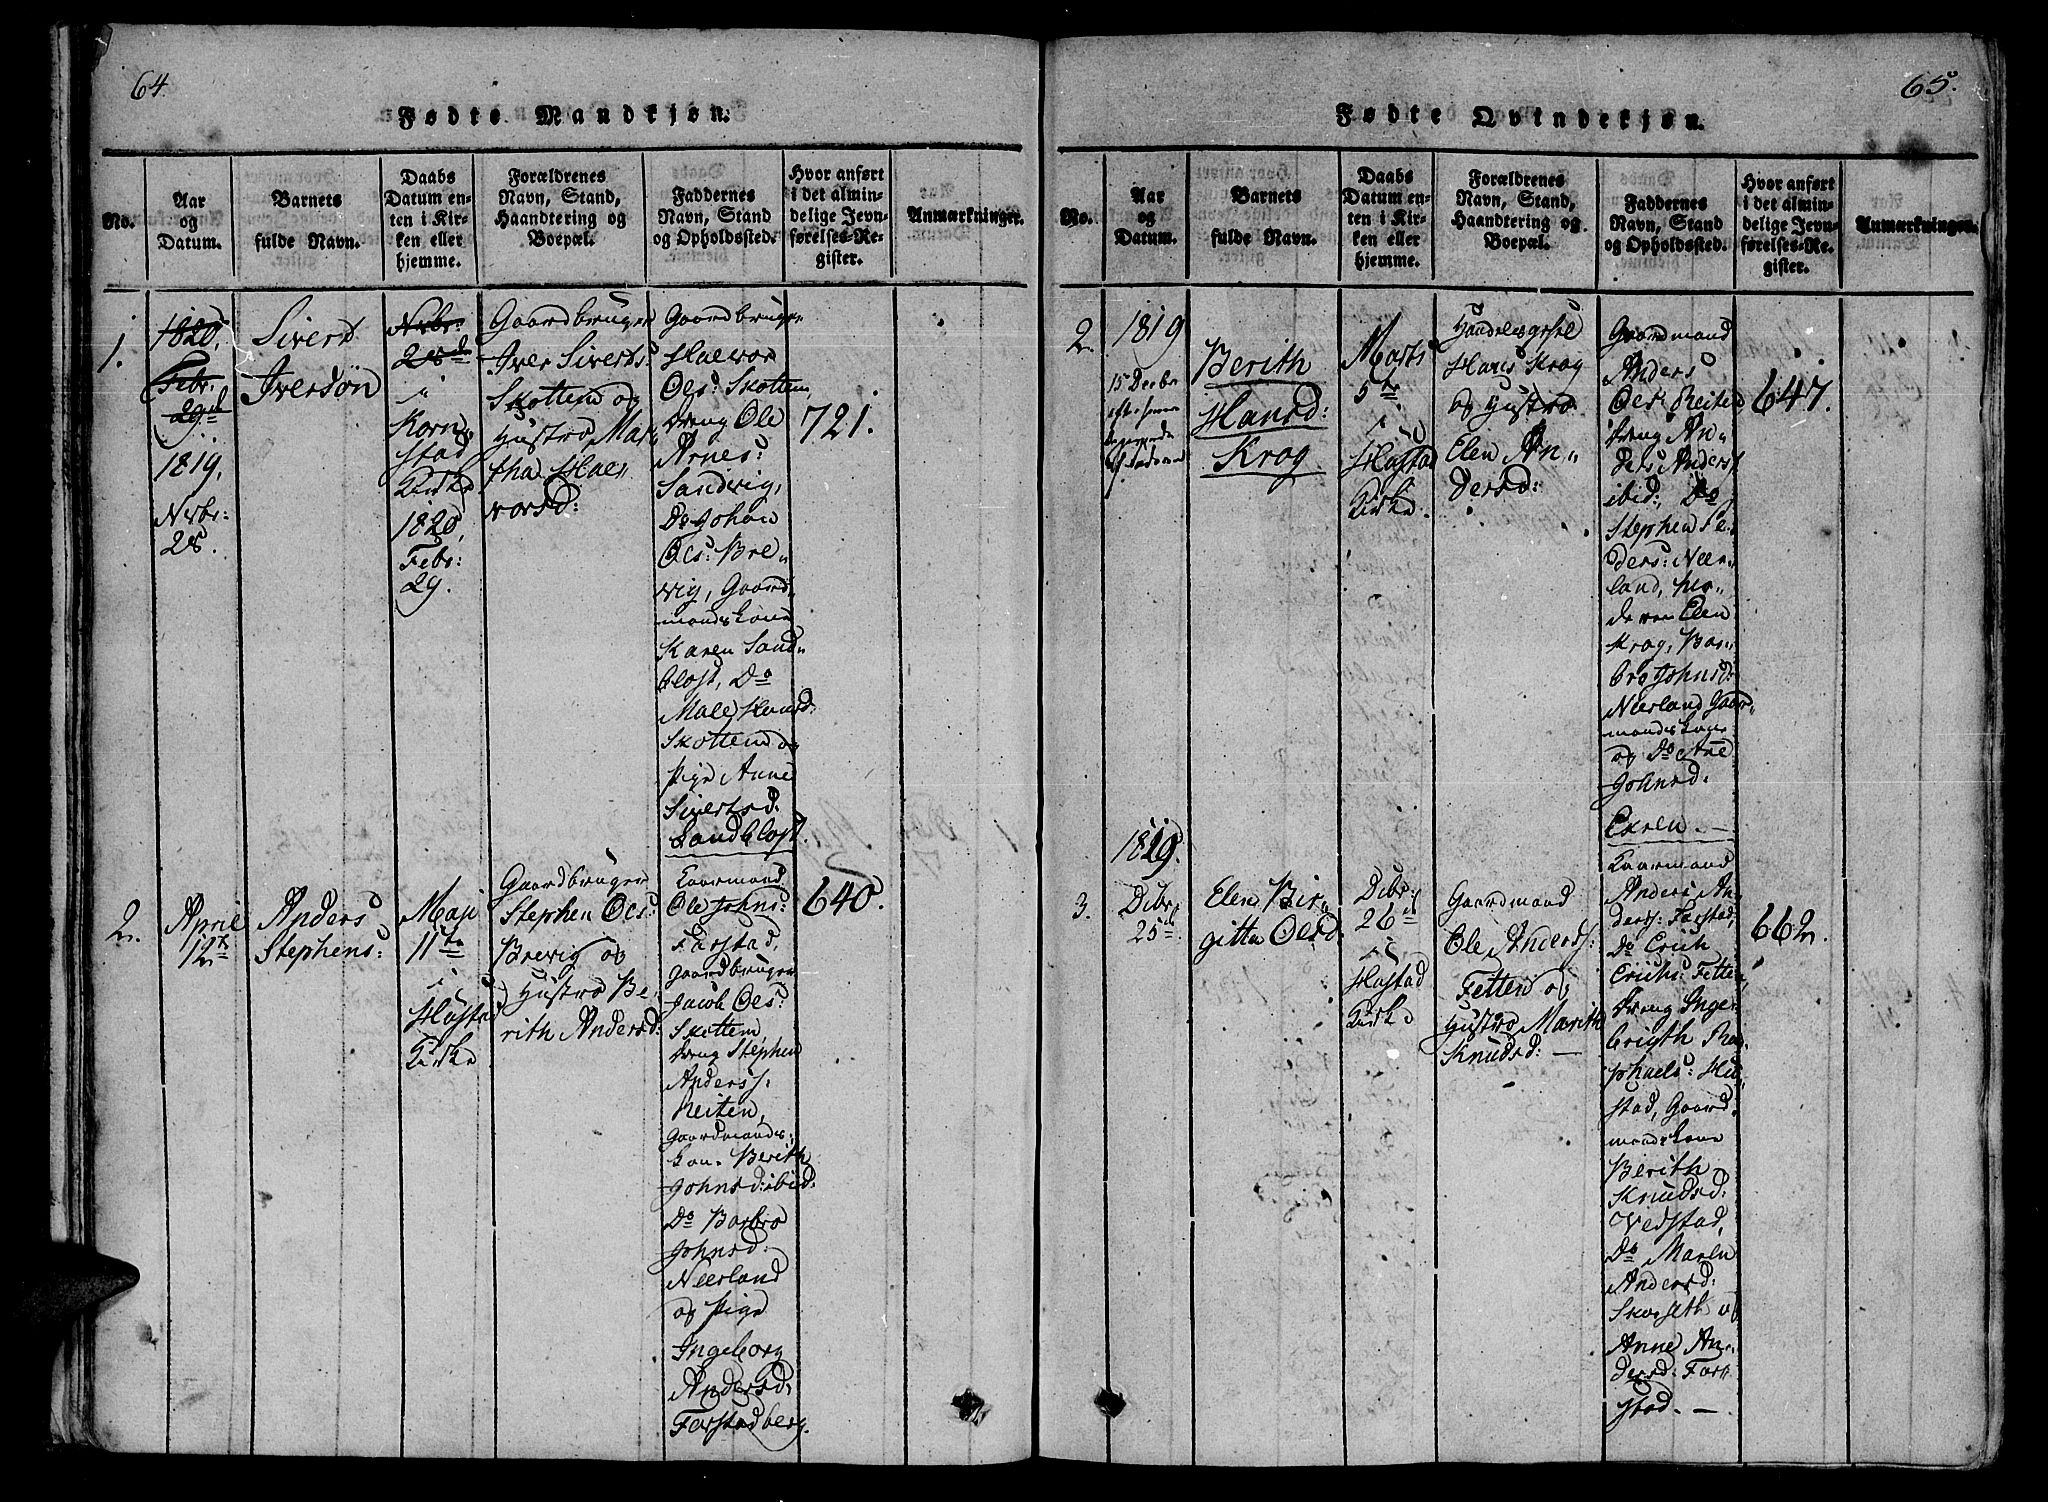 64.
Fødte Mandkjøn.
No.
Aar
og
Datum.
Barnets
fulde Navn.
Daabs
Datum en-
ten i Kir-
ken eller
hjemme.
Forældrenes
Navn, Stand,
Haandtering og
Boepæl.
Faddernes
Navn, Stand
og Opholdssted.
Hvor anført
i det almin-
delige Jevn-
førelses-Re-
gister.
Anmærkninger.
1.
1820,
Febr.
29de
1819,
Nvbr:
28.
Sivert
Iversøn
Nvbr:
28de
i
Korn-
stad
Kirke
1820,
Febr:
29.
Gaardbruger
Iver Siverts:
Skottem og
Hustro Mar-
tha Hal-
vorsd:
Gaardbruger
Halvor
Ols: Skottem,
Dreng Ole
Arnes:
Sandvig,
Do Johan
Ols: Bre-
vig, Gaard-
mandskone
Karen Sand-
blost, Do
Male Hansd:
Skottem og
Pige Anne
Sivertsd:
Sandblost.
721.
2.
April
12te
Anders
Stephens:
Maji
11te
i
Hustad
Kirke
Gaardbruger
Stephen Ols:
Brevig og
Hustro Be-
rith Andersd:
Kaarmand
Ole Johns:
Farstad,
Gaardbruger
Jacob Ols:
Skottem
Dreng Stephen
Anderss:
Reiten,
Gaardmands-
kone Berith
Johnsd: ibid:
Do Barbro
Johnsd:
Neerland
og Pige
Ingeborg
Andersd:
Farstadberg.
640.
65.
Fødte Qvindekjøn.
No.
Aar
og
Datum.
Barnets
fulde Navn.
Daabs
Datum en-
ten i Kir-
ken eller
hjemme.
Forældrenes
Navn, Stand,
Haandtering og
Boepæl.
Faddernes
Navn, Stand
og Opholdssted.
Hvor anført
i det almin-
delige Jevn-
førelses-Re-
gister.
Anmærkninger.
2.
1819
15 Decbr
Berith
Hansd:
Krog.
Marts
5te
i
Hustad
Kirke.
Handelsgesel
Hans Krog
og Hustro
Elen An-
dersd:
Gaardmand
Anders
Ols: Reiten
Dreng An-
ders Anderss
ibid: Do
Stephen Pe-
ders: Neer-
land,
Elen
Krog, Bar-
bro Johnsd:
Neerland Gaard-
mandskone
og Do Ane
Johnsd:
Exren. —
647.
1819.
3.
Dcbr
25de
Elen Bir-
gitta Olsd:
Dcbr:
26de
i
Hustad
Kirke
Gaardmand
Ole Anderss:
Fetten og
Hustro Marith
Knudsd: —
Kaarmand
Anders An-
derss: Farstad,
Do Erich
Erichs: Fetten,
Dreng Inge-
brigth Ra-
phaels: Hu-
stad, Gaard-
mandskone
Berith
Knudsd:
Vedstad,
Do Maren
Andersd:
Skarseth og
Anne An-
dersd: Far-
stad. —
662.